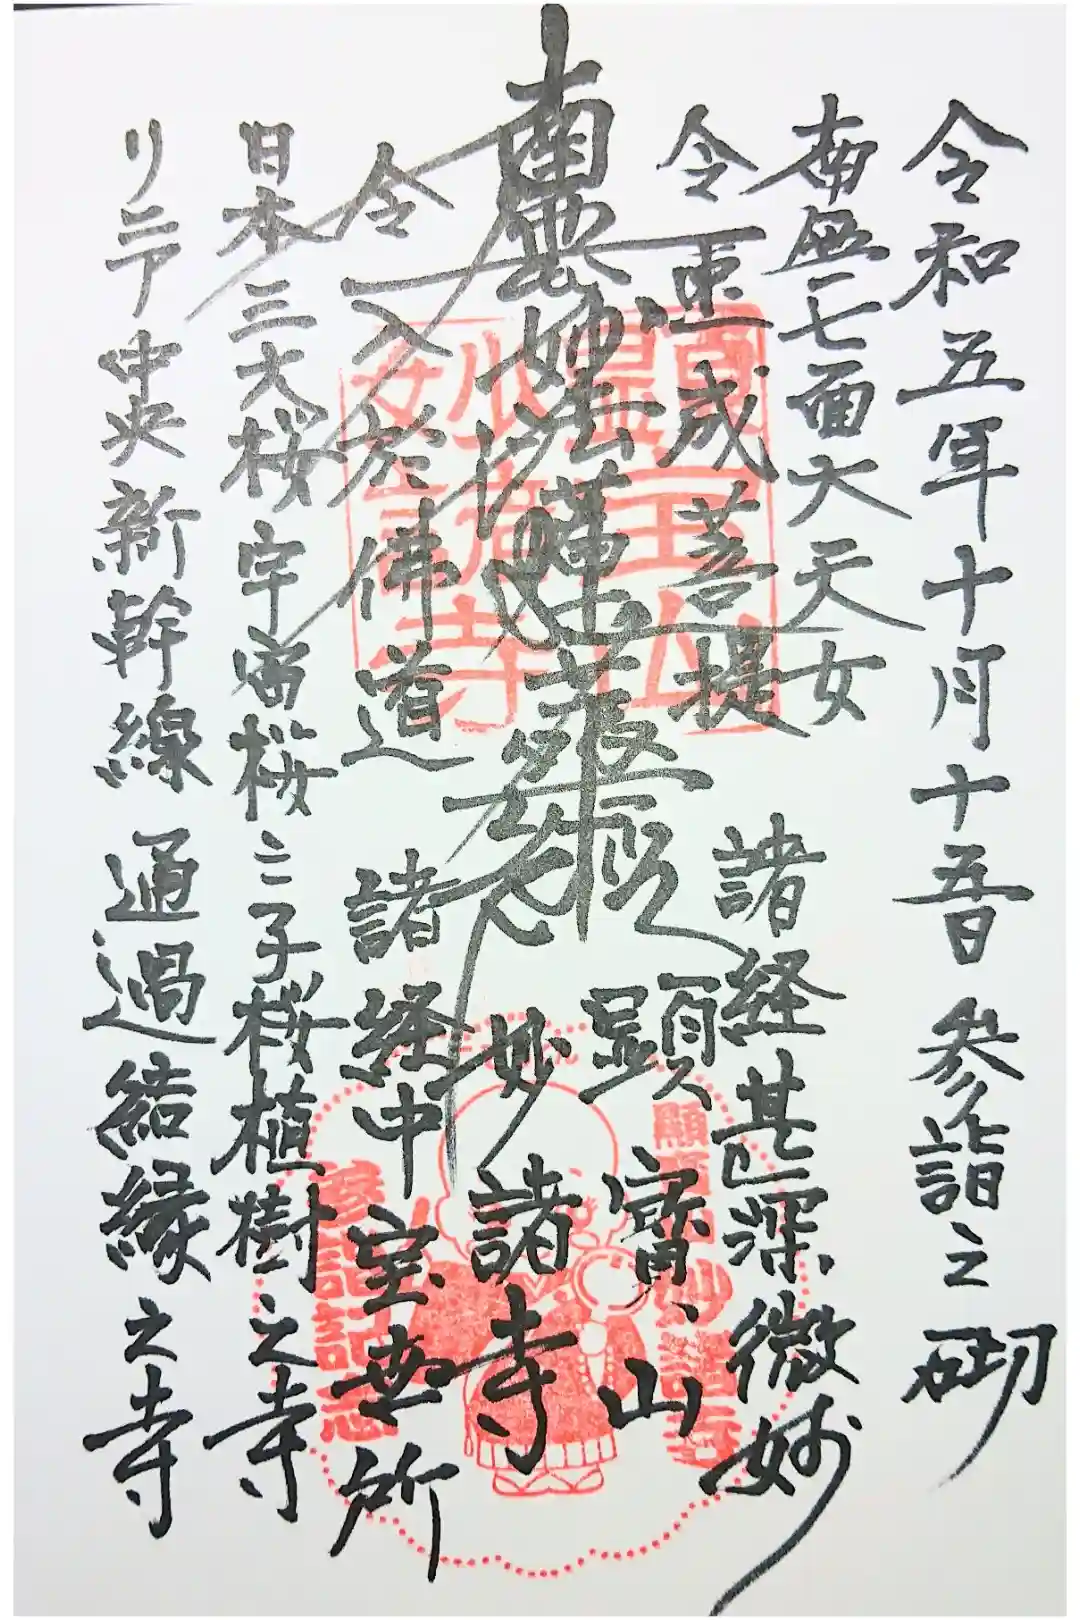 令和五年十月十五日 参詣之砌
南無七面大天女
令速成菩提 諸経甚深微妙
南無妙法蓮華経
顕寶山
妙諸寺
令入於佛道 諸経中宝世所
日本三大桜宇宙桜二子桜植樹之寺
リニア中央新幹線 通過結縁之寺
顕寶山妙諸寺
参詣記念